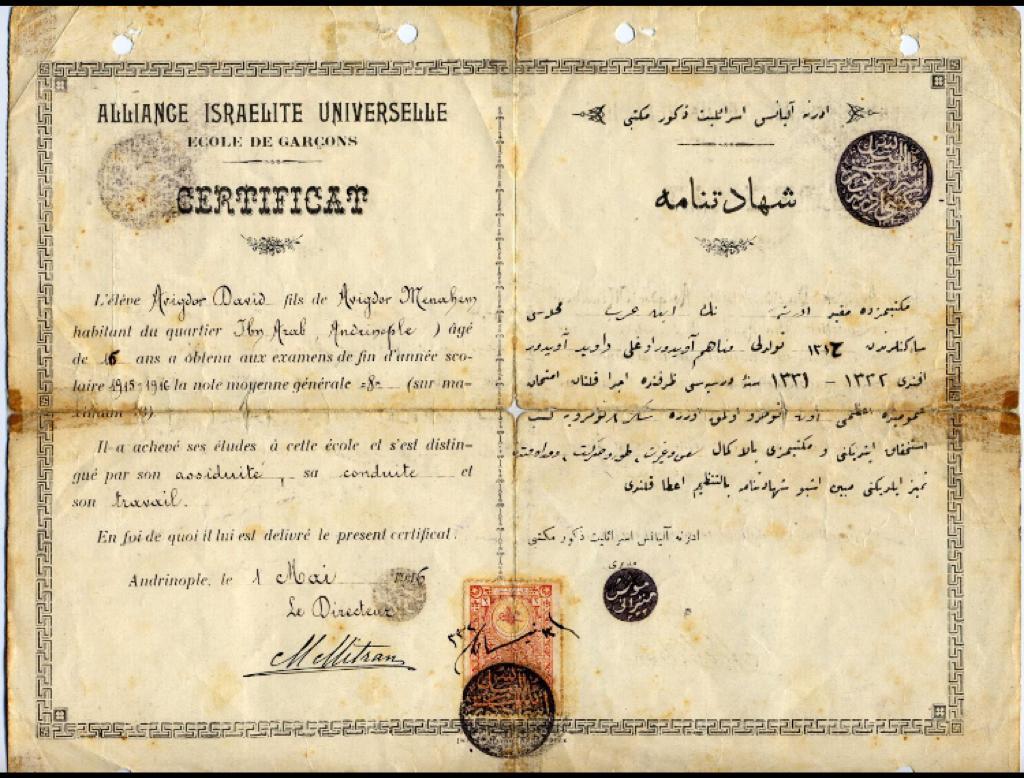 ALLIANCE ISRAELITE UNIVERSELLE
ECOLE DE GARÇONS
CERTIFICAT
L'élève Avigdor David fils de Avigdor Menahem
habitant du quartier Ibn Arab, Andrinople) âgé
de 16 ans a obtenu aux examens de fin d'année sco-
laire 1915-1916 la note moyenne générale =8= (sur ma-
ximum
Il a achevé ses études à cette école et s'est distin-
gué par son assiduité, sa conduite et
son travail.
En foi de quoi il lui est delivré le present certificat.
Andrinople, le 1 Mai 1916
Le Directeur
M Mitrani
ادرنه آليانس اسرائليت ذكور مكتبى
شهادتنامه
مكتبمزده مقيد ابن عرب محله سى
ساكنلرندن ١٣١٦ تولدلى مناهم آويغدور اوغلى داويد آويغدور
افندى ١٣٣٢ – ١٣٣١ سنۀ درسيه سى ظرفنده اجرا قلنان امتحان
عموميده اعظمى اون نومرو اولمق اوزره سكز نومرويه كسب
استحقاق ايتديكنى و مكتبمزى بالاكمال
تميز ايلديكنى مبين اشبو شهادتنامه بالتنظيم اعطا قلندى
ادرنه آليانس اسرائليت ذكور مكتبى
مديرى